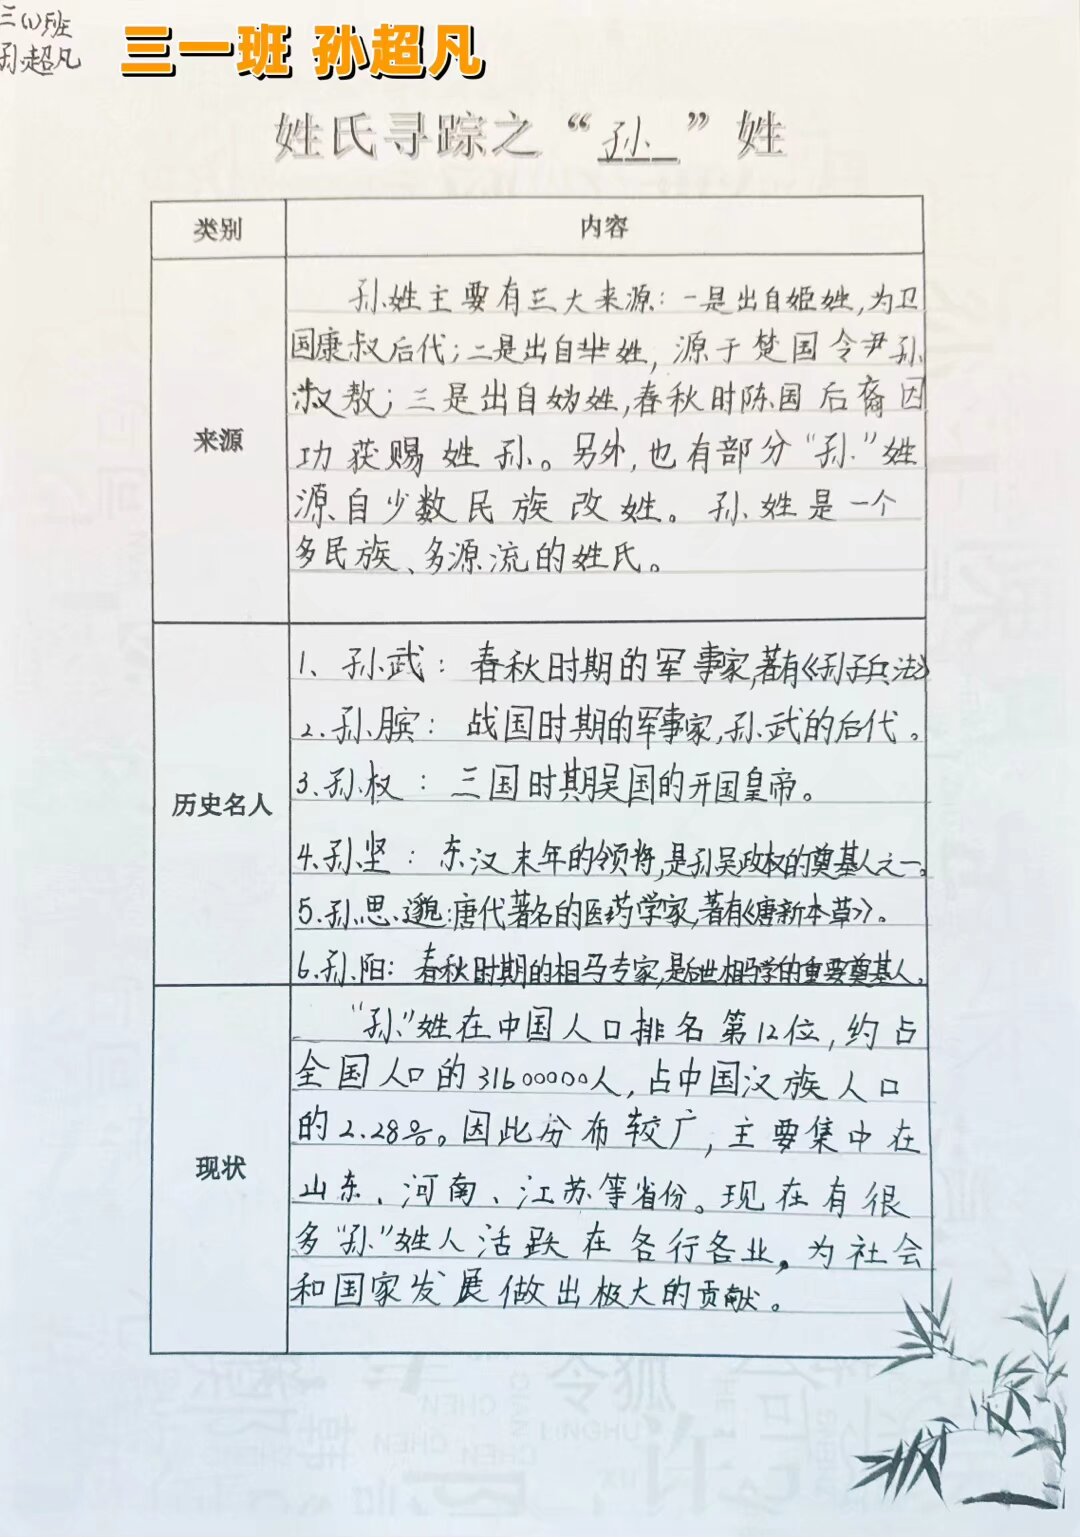 三(1)班
孙超凡
三一班 孙超凡
姓氏寻踪之“孙”姓
类别
内容
来源
孙姓主要有三大来源：一是出自姬姓，为卫
国康叔后代；二是出自芈姓，源于楚国令尹孙
叔敖；三是出自妫姓，春秋时陈国后裔因
功获赐姓孙。另外，也有部分“孙”姓
源自少数民族改姓。孙姓是一个
多民族、多源流的姓氏。
历史名人
1、孙武：春秋时期的军事家，著有《孙子兵法》
2.孙膑：战国时期的军事家，孙武的后代。
3.孙权：三国时期吴国的开国皇帝。
4.孙坚：东汉末年的领将，是孙吴政权的奠基人之一。
5.孙思邈：唐代著名的医药学家，著有《唐新本草》。
6.孙阳：春秋时期的相马专家，是后世相马学的重要奠基人。
现状
“孙”姓在中国人口排名第12位，约占
全国人口的31600000人，占中国汉族人口
的2.28%。因此分布较广，主要集中在
山东、河南、江苏等省份。现在有很
多“孙”姓人活跃在各行各业，为社会
和国家发展做出极大的贡献。
令狐
CHEN
CHEN
CHEN